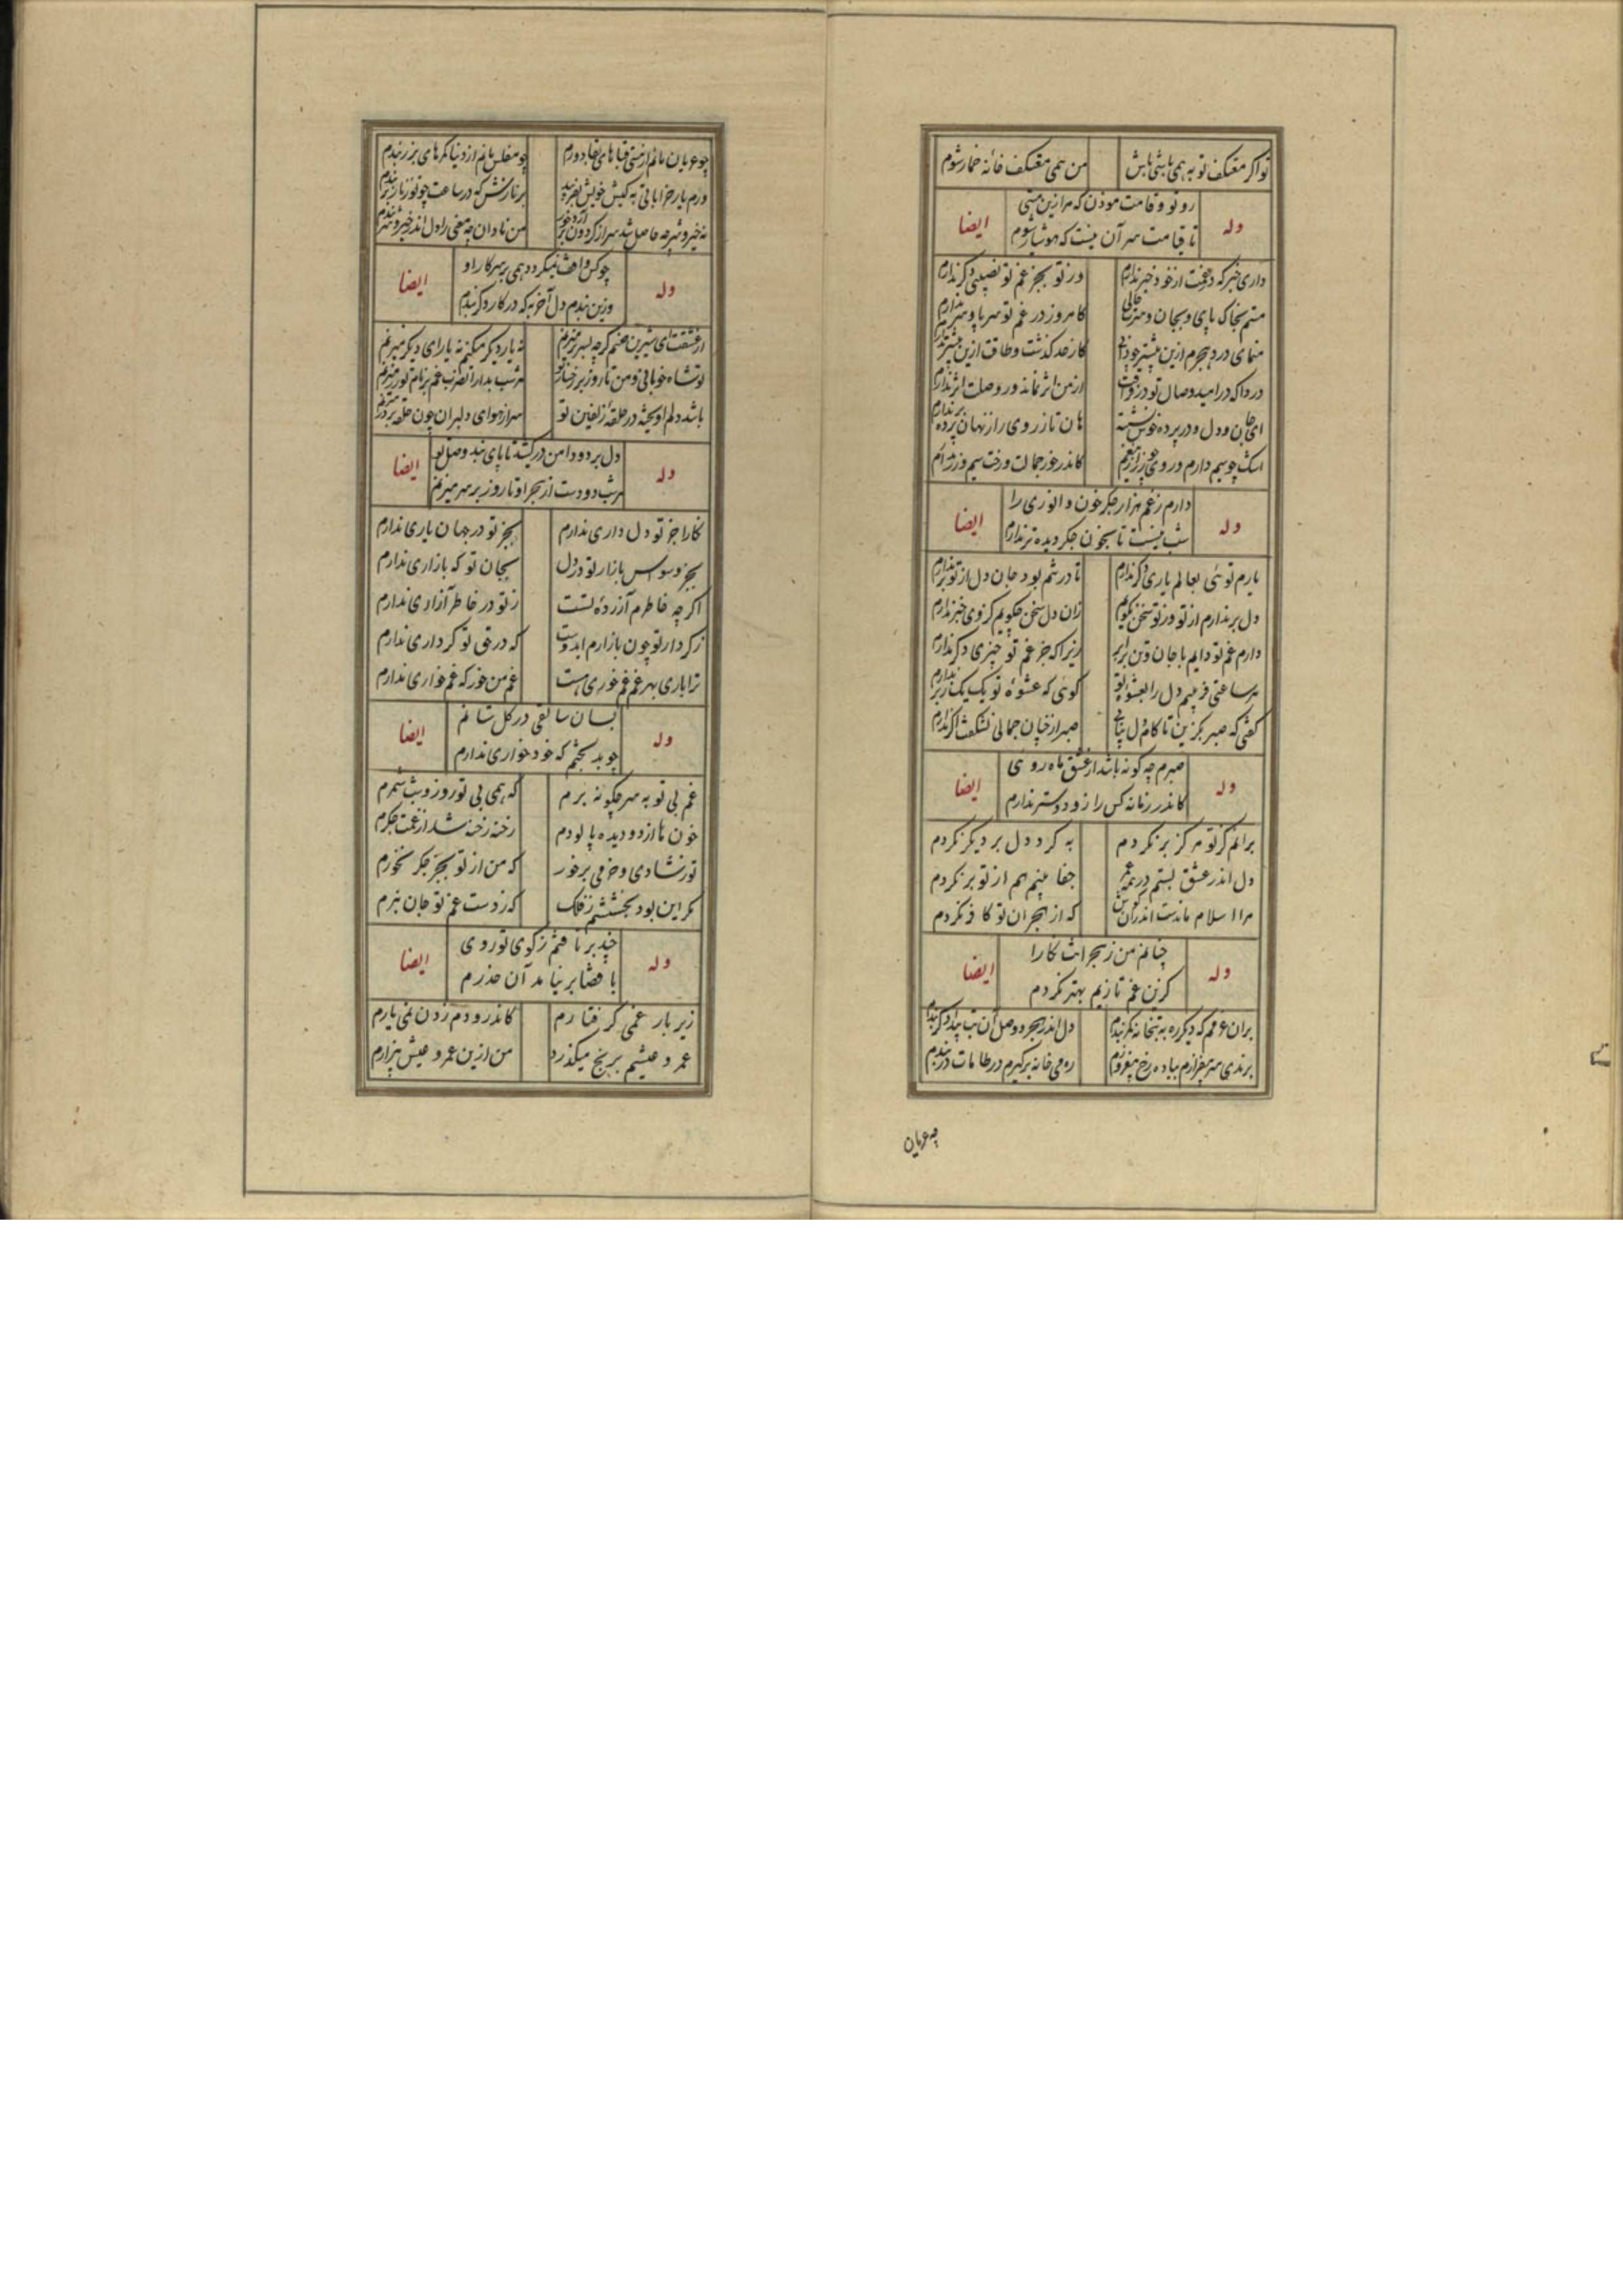 تو اگر معتکف توبه همی باشی باش من همی معتکف خانه خمار شوم
رو تو و قامت موذن که مرا زین مستی
وله ایضا
تا قیامت سر آن نیست که هوشیار شوم
داری خبر که در غمت از خود خبر ندارم وز تو بجز غم تو نصیبی دگر ندارم
هستم بخاک پای و بجان و سر کامروز در غم تو سر پا و سر ندارم
منمای درد هجرم ازین بیشتر کاز حد گذشت و طاقت ازین بیشتر ندارم
دردا که در امید وصال تو در فراقت از من اثر نماند و ز وصلت اثر ندارم
ای جان و دل و در پرده خوش نشسته هان تا ز روی راز نهان پرده بر ندارم
اشک چو سیم دارم و روی چو زر کاندر خور جمالت و رخت سیم و زر ندارم
دارم ز غم هزار جگر خون و انوری را
وله ایضا
شب نیست تا بخون جگر دیده تر ندارم
یارم توئی بعالم یاری دگر ندارم تا در تنم بود جان دل از تو بر ندارم
دل بر ندارم از تو وز تو سخن نگویم زان دل سخن چگویم کز وی خبر ندارم
دارم غم تو دایم با جان و تن برابر زیرا که جز غم تو چیزی دگر ندارم
هر ساعتی فریبم دل را بعشوه تو گوئی که عشوه تو یک یک ز بر ندارم
گفتی که صبر بگزین تا کام دل بیابی صبر از چنان جمالی نشکفت اگر ندارم
صبرم چه گونه باشد از عشق ماه روئی
وله ایضا
کاندر زمانه کس را زو دوستر ندارم
بر آنم کز تو هرگز بر نگردم به گرد دل بر دیگر نگردم
دل اندر عشق بستم در همه عمر جفا بینم هم از تو بر نگردم
مرا اسلام ماندست اندر آن که از هجران تو کافر نگردم
چنانم من ز هجرانت نگارا
وله ایضا
کزین غم تا زیم بهتر نگردم
بر آن عزمم که دیگر ره به بتخانه کمر بندم دل اندر هجر و وصل آن بت
برندی سر بیفرازم بباده رخ بیفروزم ره میخانه برگیرم در طامات در بندم
چه عریان
چو عریان مانم از هستی قباهای بقا دوزم چو مفلس مانم از دنیا کمرهای بزر بندم
ورم یار خراباتی به کیش خویش بفریبد بر نازنش که در ساعت چو تو زنار بر بندم
نه خیر و شر چه حاصل شد سر از گردون من نادان چه معنی را دل اندر خیر و شر بندم
چو کس واقف نمیگردد همی بر سر کار او
وله ایضا
وزین بندم دل آخر به که در کار دگر بندم
از عشقت ای شیرین صنم گر چه بسر بر میزنم نه یار دیگر میکنم نه رای دیگر میزنم
تو شاه خوبانی و من تا روز بر هر شب بدارالضرب غم بر نام تو زر میزنم
باشد دلم آویخته در حلقه زلفین تو سر از هوای دلبران چون حلقه بر در میزنم
دل برد و دامن در کشد تا پای بند وصل تو
وله ایضا
هر شب دو دست از هجر او تا روز بر سر میزنم
نگارا جز تو دلداری ندارم بجز تو در جهان یاری ندارم
بجز وسواس بازار تو در دل بجان تو که بازاری ندارم
اگر چه خاطرم آزرده تست ز تو در خاطر آزاری ندارم
ز کردار تو چون بازارم ای دوست که در حق تو کرداری ندارم
ترا باری بهر غم غمخوری هست غم من خور که غمخواری ندارم
بسان سائقی در گل شانم
وله ایضا
چو بد بختم که خود خواری ندارم
غم بی تو به سر چگونه برم که همی بی تو روز و شب شمرم
خون ها از دو دیده پالودم رخنه رخنه شد از غمت جگرم
تو ز شادی و خرمی برخور که من از تو بجز جگر نخورم
مگر این بود بخششم ز فلک که ز دست غم تو جان نبرم
چند بر تافتم ز کوی تو روی
وله ایضا
با قضا بر نیامد آن حذرم
زیر بار غمی گرفتارم کاندرو دم زدن نمی یارم
عمر و عیشم برنج میگذرد من ازین عمر و عیش بیزارم